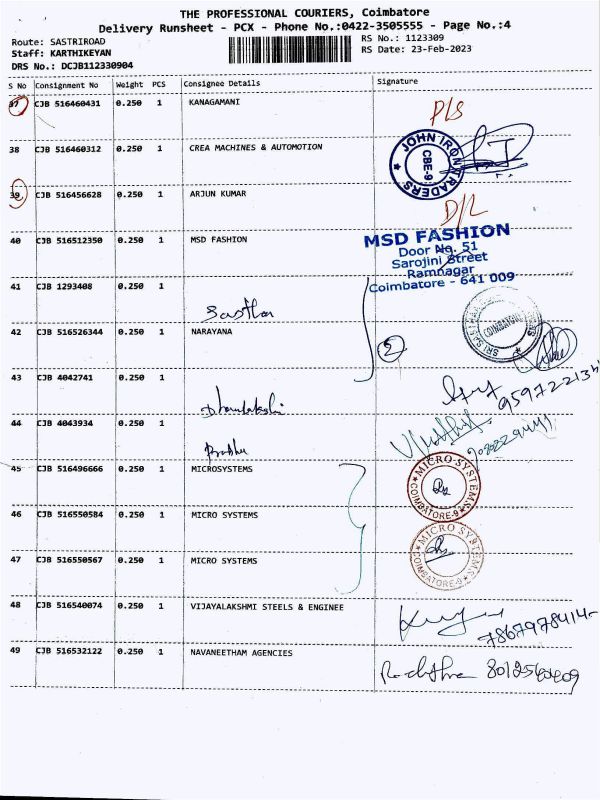 THE PROFESSIONAL COURIERS, Coimbatore
Delivery Runsheet - PCX - Phone No.:0422-3505555 - Page No.:4
Route: SASTRIROAD
RS No.: 1123309
Staff: KARTHIKEYAN
RS Date: 23-Feb-2023
DRS No.: DCJB112330904
S No Consignment No Weight PCS Consignee Details Signature
37 CJB 516460431 0.250 1 KANAGAMANI
P/S
38 CJB 516460312 0.250 1 CREA MACHINES & AUTOMOTION
JOHN IRON TRADERS
CBE-9
39 CJB 516456628 0.250 1 ARJUN KUMAR
D/L
40 CJB 516512350 0.250 1 MSD FASHION
MSD FASHION
Door No. 51
Sarojini Street
Ramnagar
Coimbatore - 641 009
41 CJB 1293408 0.250 1
Sastha
COIMBATORE
42 CJB 516526344 0.250 1 NARAYANA
2
43 CJB 4042741 0.250 1
44 CJB 4043934 0.250 1
Prabhu
45 CJB 516496666 0.250 1 MICROSYSTEMS
MICRO SYSTEMS
COIMBATORE-9
46 CJB 516550584 0.250 1 MICRO SYSTEMS
MICRO SYSTEMS
COIMBATORE-9
47 CJB 516550567 0.250 1 MICRO SYSTEMS
48 CJB 516540074 0.250 1 VIJAYALAKSHMI STEELS & ENGINEE
7867978414
49 CJB 516532122 0.250 1 NAVANEETHAM AGENCIES